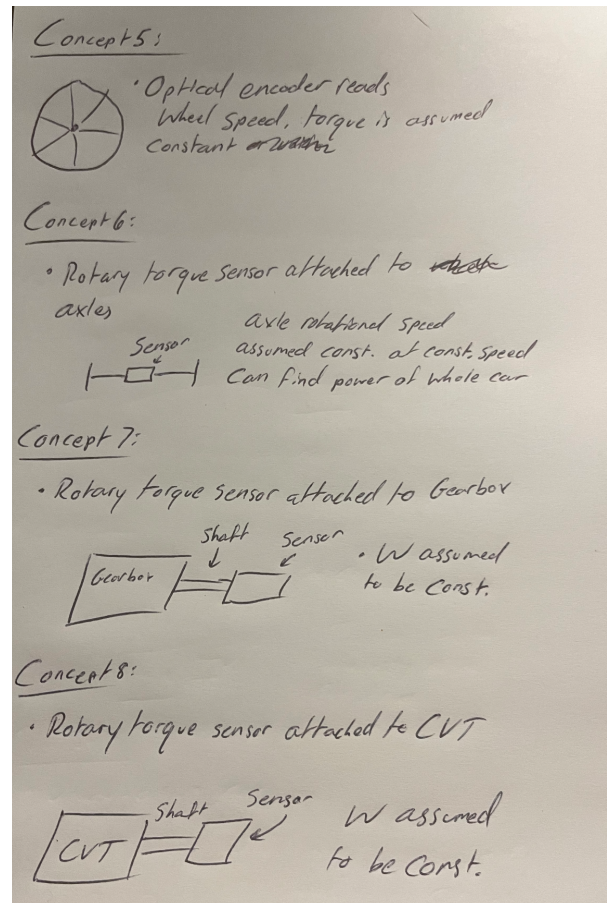 Concept 5:
• Optical encoder reads
Wheel speed, torque is assumed
Constant
Concept 6:
• Rotary torque sensor attached to
axles
Sensor
axle rotational speed
assumed const. at const. speed
Can find power of whole car
Concept 7:
• Rotary torque sensor attached to Gearbox
Gearbox
Shaft
Sensor
• W assumed
to be Const.
Concept 8:
• Rotary torque sensor attached to CVT
CVT
Shaft
Sensor
W assumed
to be Const.